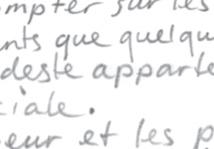 ompter sur les
nts que quelqu
deste apparte
ciale.
eur et les p